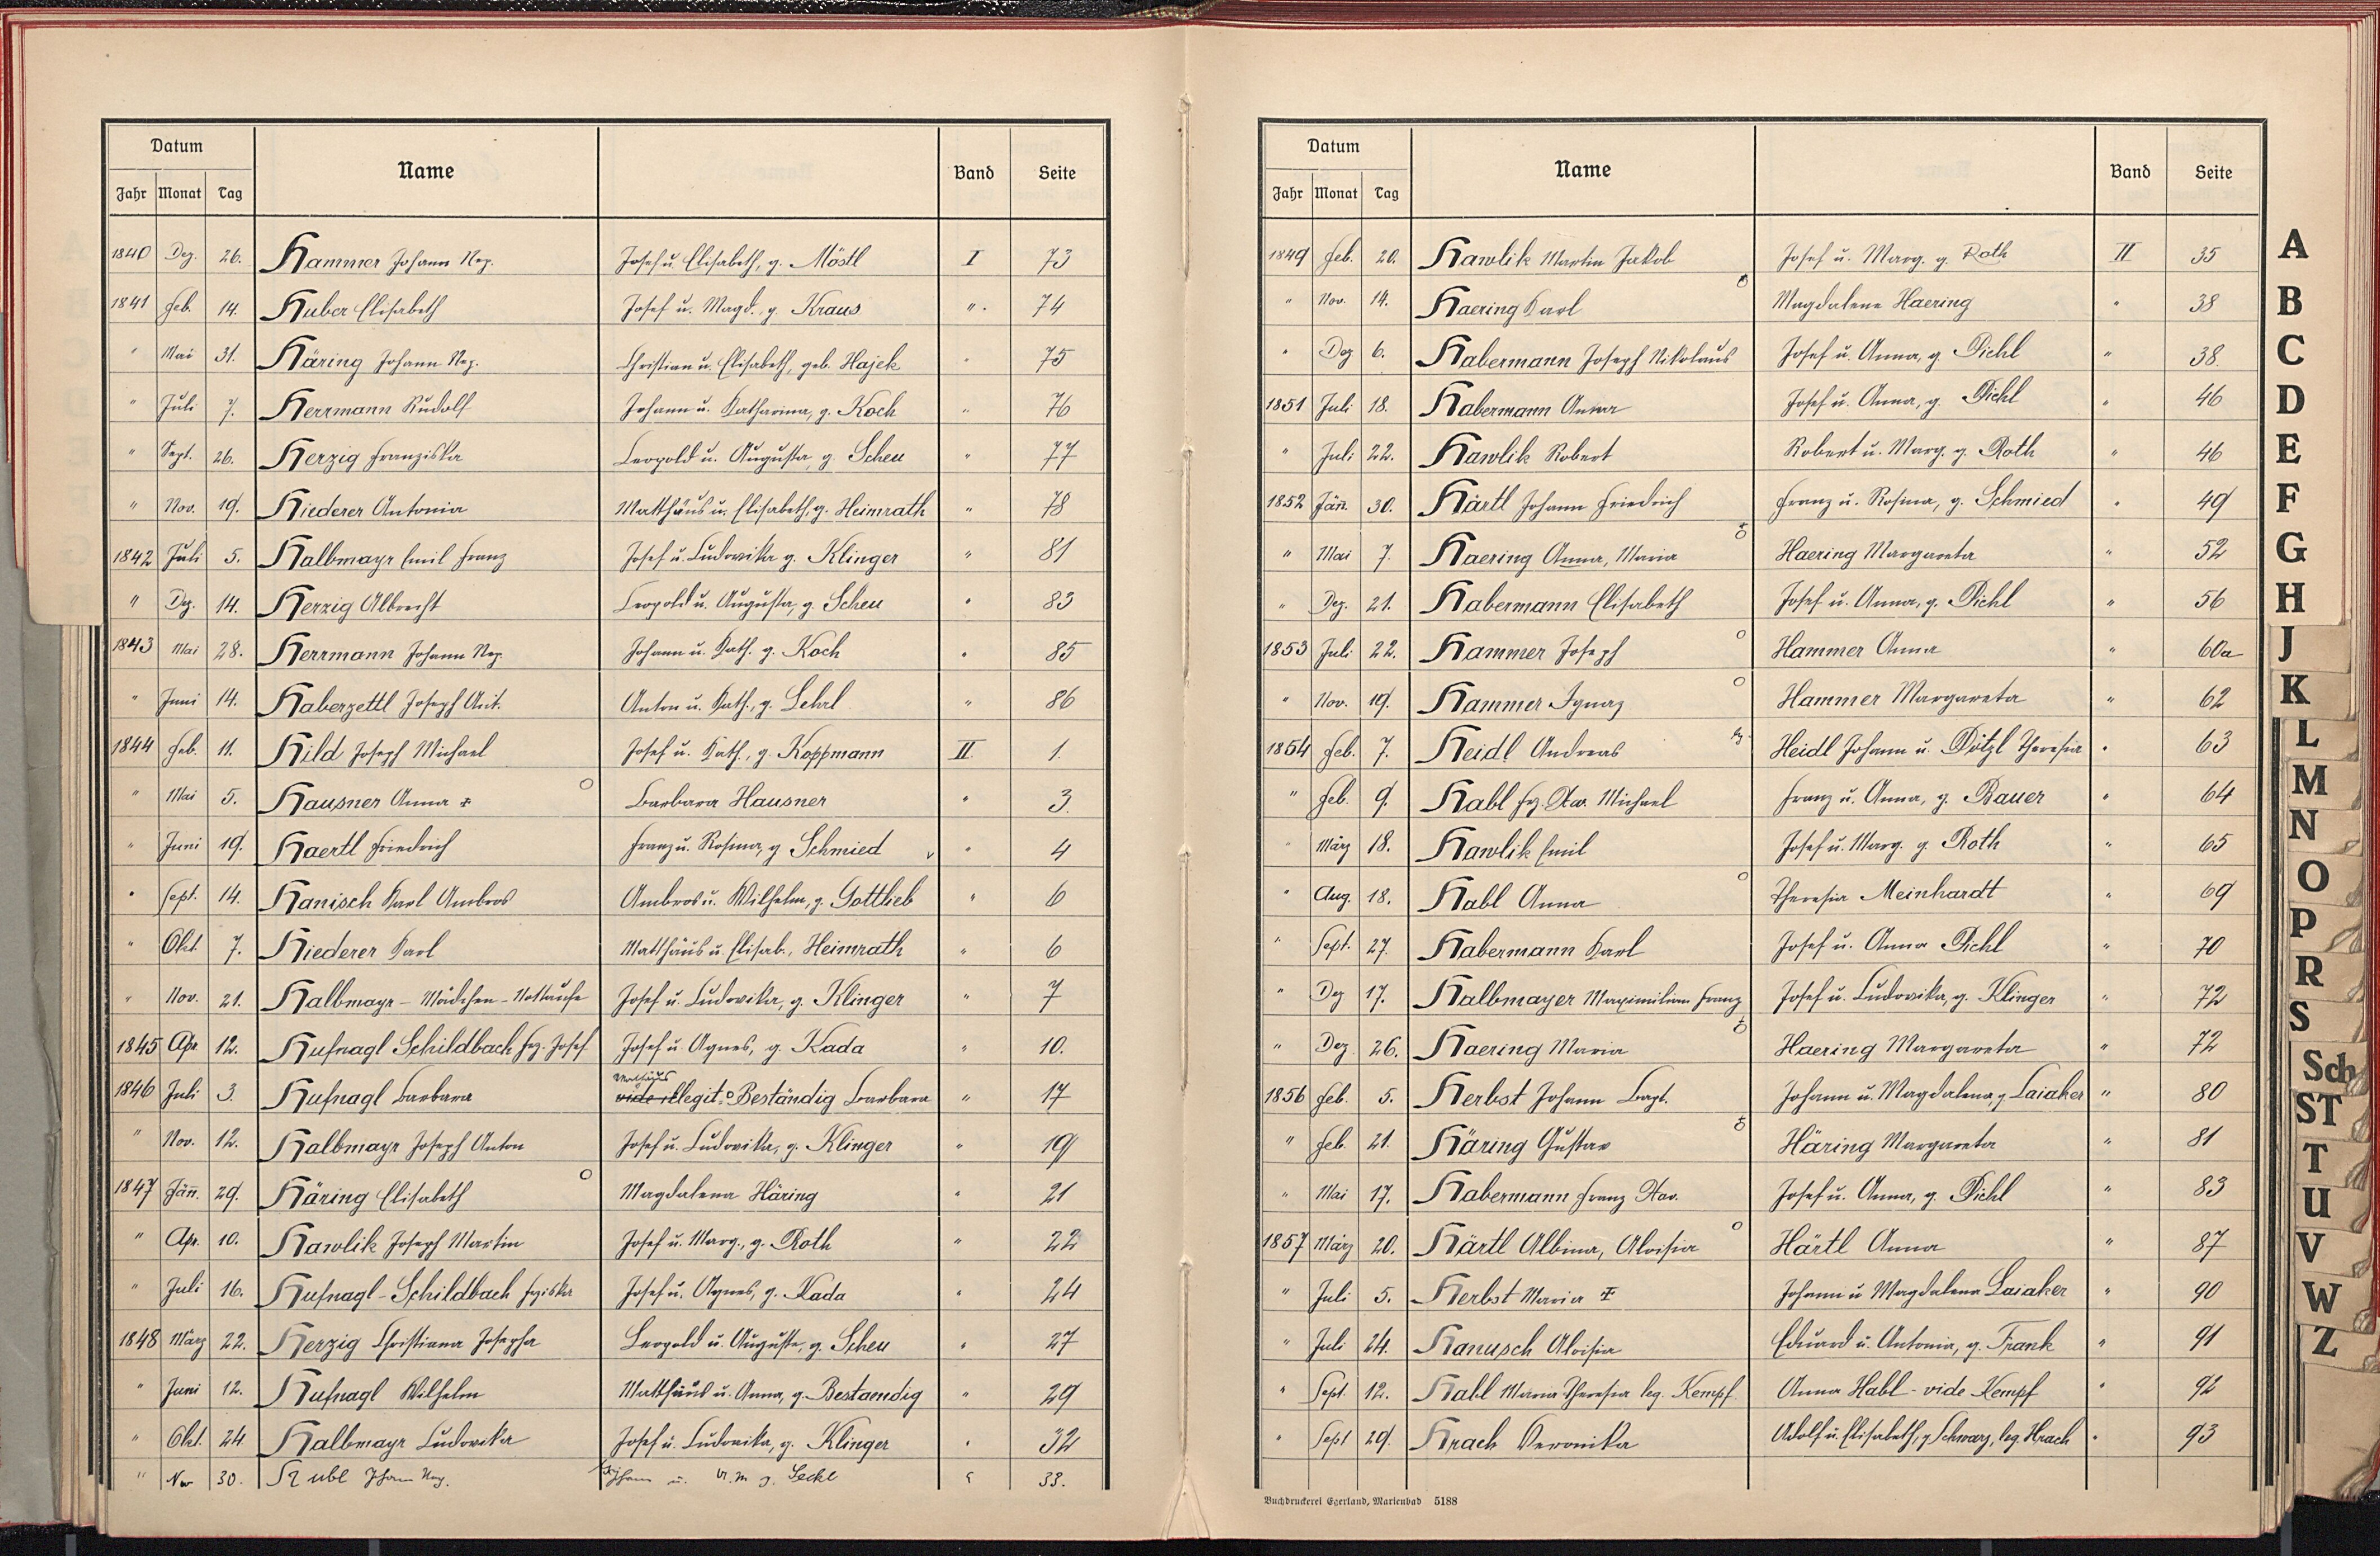 Datum Name Band Seite
Jahr Monat Tag
1840 Dez. 26. Hammer Johann Nep. Josef u. Elisabeth, g. Möstl I 73
1841 Feb. 14. Huber Elisabeth Josef u. Magd., g. Kraus " 74
" Mai 31. Häring Johann Nep. Christian u. Elisabeth, geb. Hajek " 75
" Juli 7. Herrmann Rudolf Johann u. Katharina, g. Koch " 76
" Sept. 26. Herzig Franziska Leopold u. Augusta g. Scheu " 77
" Nov. 19. Hiederer Antonia Matthäus u. Elisabeth, g. Heimrath " 78
1842 Juli 5. Halbmayr Emil Franz Josef u. Ludovika g. Klinger " 81
" Dez. 14. Herzig Albrecht Leopold u. Augusta, g. Scheu " 83
1843 Mai 28. Herrmann Johann Nep. Johann u. Kath. g. Koch " 85
" Juni 14. Haberzettl Joseph Ant. Anton u. Kath., g. Lehrl " 86
1844 Feb. 11. Hild Joseph Michael Josef u. Kath., g. Koppmann II. 1.
" Mai 5. Hausner Anna Barbara Hausner " 3.
" Juni 19. Haertl Friedrich Franz u. Rosina, g. Schmied " 4
" Sept. 14. Hanisch Karl Ambros Ambros u. Wilhelm, g. Gottlieb " 6
" Okt. 7. Hiederer Karl Matthäus u. Elisab., Heimrath " 6
" Nov. 21. Halbmayr - Mädchen - Nottaufe Josef u. Ludovika, g. Klinger " 7
1845 Apr. 12. Hufnagl Schildbach Frz. Josef Josef u. Agnes, g. Kada " 10.
Mathäus
1846 Juli 3. Hufnagl Barbara vide illegit. Beständig Barbara " 17
" Nov. 12. Halbmayr Joseph Anton Josef u. Ludovika, g. Klinger " 19
1847 Jän. 29. Häring Elisabeth Magdalena Häring " 21
" Apr. 10. Hawlik Joseph Martin Josef u. Marg., g. Roth " 22
" Juli 16. Hufnagl-Schildbach Frziska Josef u. Agnes, g. Kada " 24
1848 März 22. Herzig Christiana Josepha Leopold u. Auguste, g. Scheu " 27
" Juni 12. Hufnagl Wilhelm Matthäus u. Anna, g. Bestaendig " 29
" Okt. 24 Halbmayr Ludovika Josef u. Ludovika, g. Klinger " 32
" Nov 30. Johann Nep. Johann u. 33.
Datum Name Band Seite
Jahr Monat Tag
1849 Feb. 20. Hawlik Martin Jakob Josef u. Marg. g. Roth II 35
" Nov. 14. Haering Karl Magdalena Haering " 38
" Dez 6. Habermann Joseph Nikolaus Josef u. Anna, g. Pichl " 38.
1851 Juli 18. Habermann Anna Josef u. Anna, g. Pichl " 46
" Juli 22. Hawlik Robert Robert u. Marg. g. Roth " 46
1852 Jän. 30. Härtl Johann Friedrich Franz u. Rosina, g. Schmied " 49
" Mai 7. Haering Anna, Maria Haering Margareta " 52
" Dez. 21. Habermann Elisabeth Josef u. Anna, g. Pichl " 56
1853 Juli 22. Hammer Joseph Hammer Anna " 60a
" Nov. 19. Hammer Ignaz Hammer Margareta " 62
1854 Feb. 7. Heidl Andreas Heidl Johann u. Dötzl Theresia " 63
" Feb. 9. Habl Frz. Xav. Michael Franz u. Anna, g. Bauer " 64
" März 18. Hawlik Emil Josef u. Marg. g. Roth " 65
" Aug. 18. Habl Anna Theresia Meinhardt " 69
" Sept. 27. Habermann Karl Josef u. Anna Pichl " 70
" Dez 17. Halbmayer Maximilian Franz Josef u. Ludovika, g. Klinger " 72
" Dez 26. Haering Maria Haering Margareta " 72
1856 Feb. 5. Herbst Johann Bapt. Johann u. Magdalena, g. Laiaker " 80
" Feb. 21. Häring Gustav Häring Margareta " 81
" Mai 17. Habermann Franz Xav. Josef u. Anna, g. Pichl " 83
1857 März 20. Härtl Albina, Aloisia Härtl Anna " 87
" Juli 5. Herbst Maria Johann u Magdalena Laiaker " 90
" Juli 24. Hanusch Aloisia Eduard u. Antonia, g. Frank " 91
" Sept. 12. Habl Maria Theresia leg. Kempf Anna Habl - vide Kempf " 92
" Sept 29. Hrach Veronika Adolf u. Elisabeth, g Schwarz, leg. Hrach " 93
Buchdruckerei Egerland, Marienbad 5188
A
B
C
D
E
F
G
H
J
K
L
M
N
O
P
R
S
Sch
ST
T
U
V
W
Z